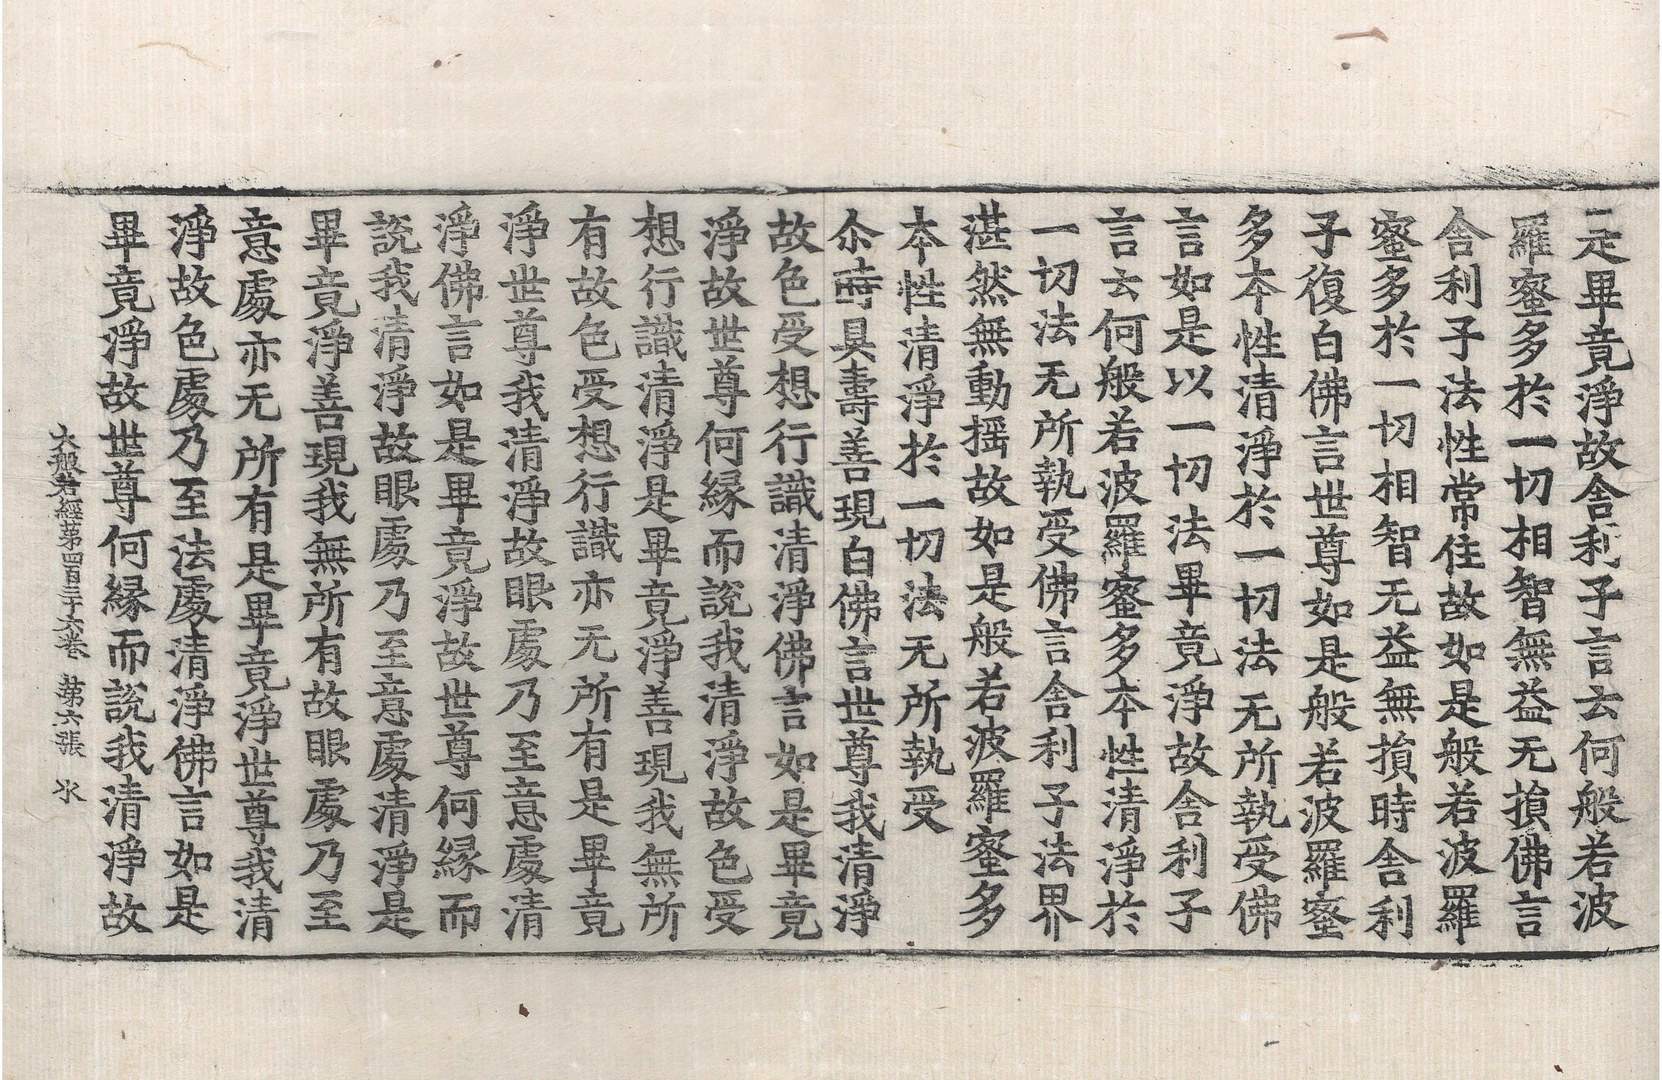 是畢竟淨故舍利子言云何般若波
羅蜜多於一切相智無益无損佛言
舍利子法性常住故如是般若波羅
蜜多於一切相智无益無損時舍利
子復白佛言世尊如是般若波羅蜜
多本性清淨於一切法无所執受佛
言如是以一切法畢竟淨故舍利子
言云何般若波羅蜜多本性清淨於
一切法无所執受佛言舍利子法界
湛然無動揺故如是般若波羅蜜多
本性清淨於一切法无所執受
尒時具壽善現白佛言世尊我清淨
故色受想行識清淨佛言如是畢竟
淨故世尊何緣而說我清淨故色受
想行識清淨是畢竟淨善現我無所
有故色受想行識亦无所有是畢竟
淨世尊我清淨故眼處乃至意處清
淨佛言如是畢竟淨故世尊何緣而
說我清淨故眼處乃至意處清淨是
畢竟淨善現我無所有故眼處乃至
意處亦无所有是畢竟淨世尊我清
淨故色處乃至法處清淨佛言如是
畢竟淨故世尊何緣而說我清淨故
大般若經第四百三十六卷 第六張 氷